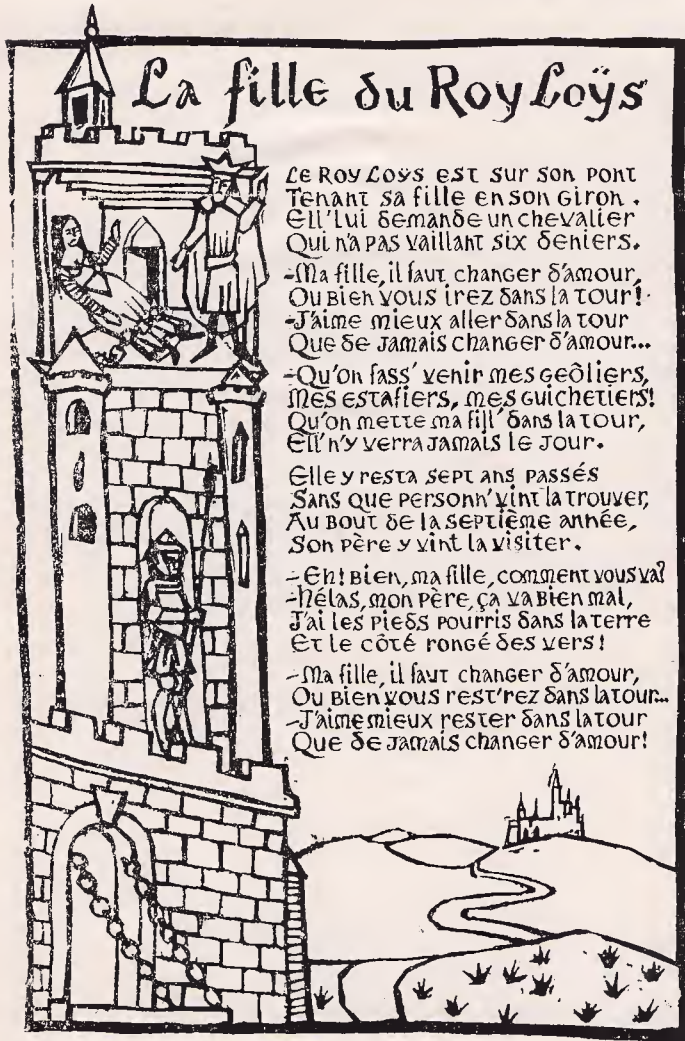 La fille du Roy Loÿs
Le Roy Loÿs est sur son pont
Tenant sa fille en son giron.
Ell'lui demande un chevalier
Qui n'a pas vaillant six deniers.
-Ma fille, il faut changer d'amour,
Ou bien vous irez dans la tour!
-J'aime mieux aller dans la tour
Que de jamais changer d'amour...
-Qu'on fass' venir mes geôliers,
Mes estafiers, mes guichetiers!
Qu'on mette ma fill' dans la tour,
Ell' n'y verra jamais le jour.
Elle y resta sept ans passés
Sans que personn' vint la trouver,
Au bout de la septième année,
Son père y vint la visiter.
-Eh! Bien, ma fille, comment vous va?
-Hélas, mon père, ça va bien mal,
J'ai les pieds pourris dans la terre
Et le côté rongé des vers!
-Ma fille, il faut changer d'amour,
Ou bien vous rest'rez dans la tour...
-J'aime mieux rester dans la tour
Que de jamais changer d'amour!